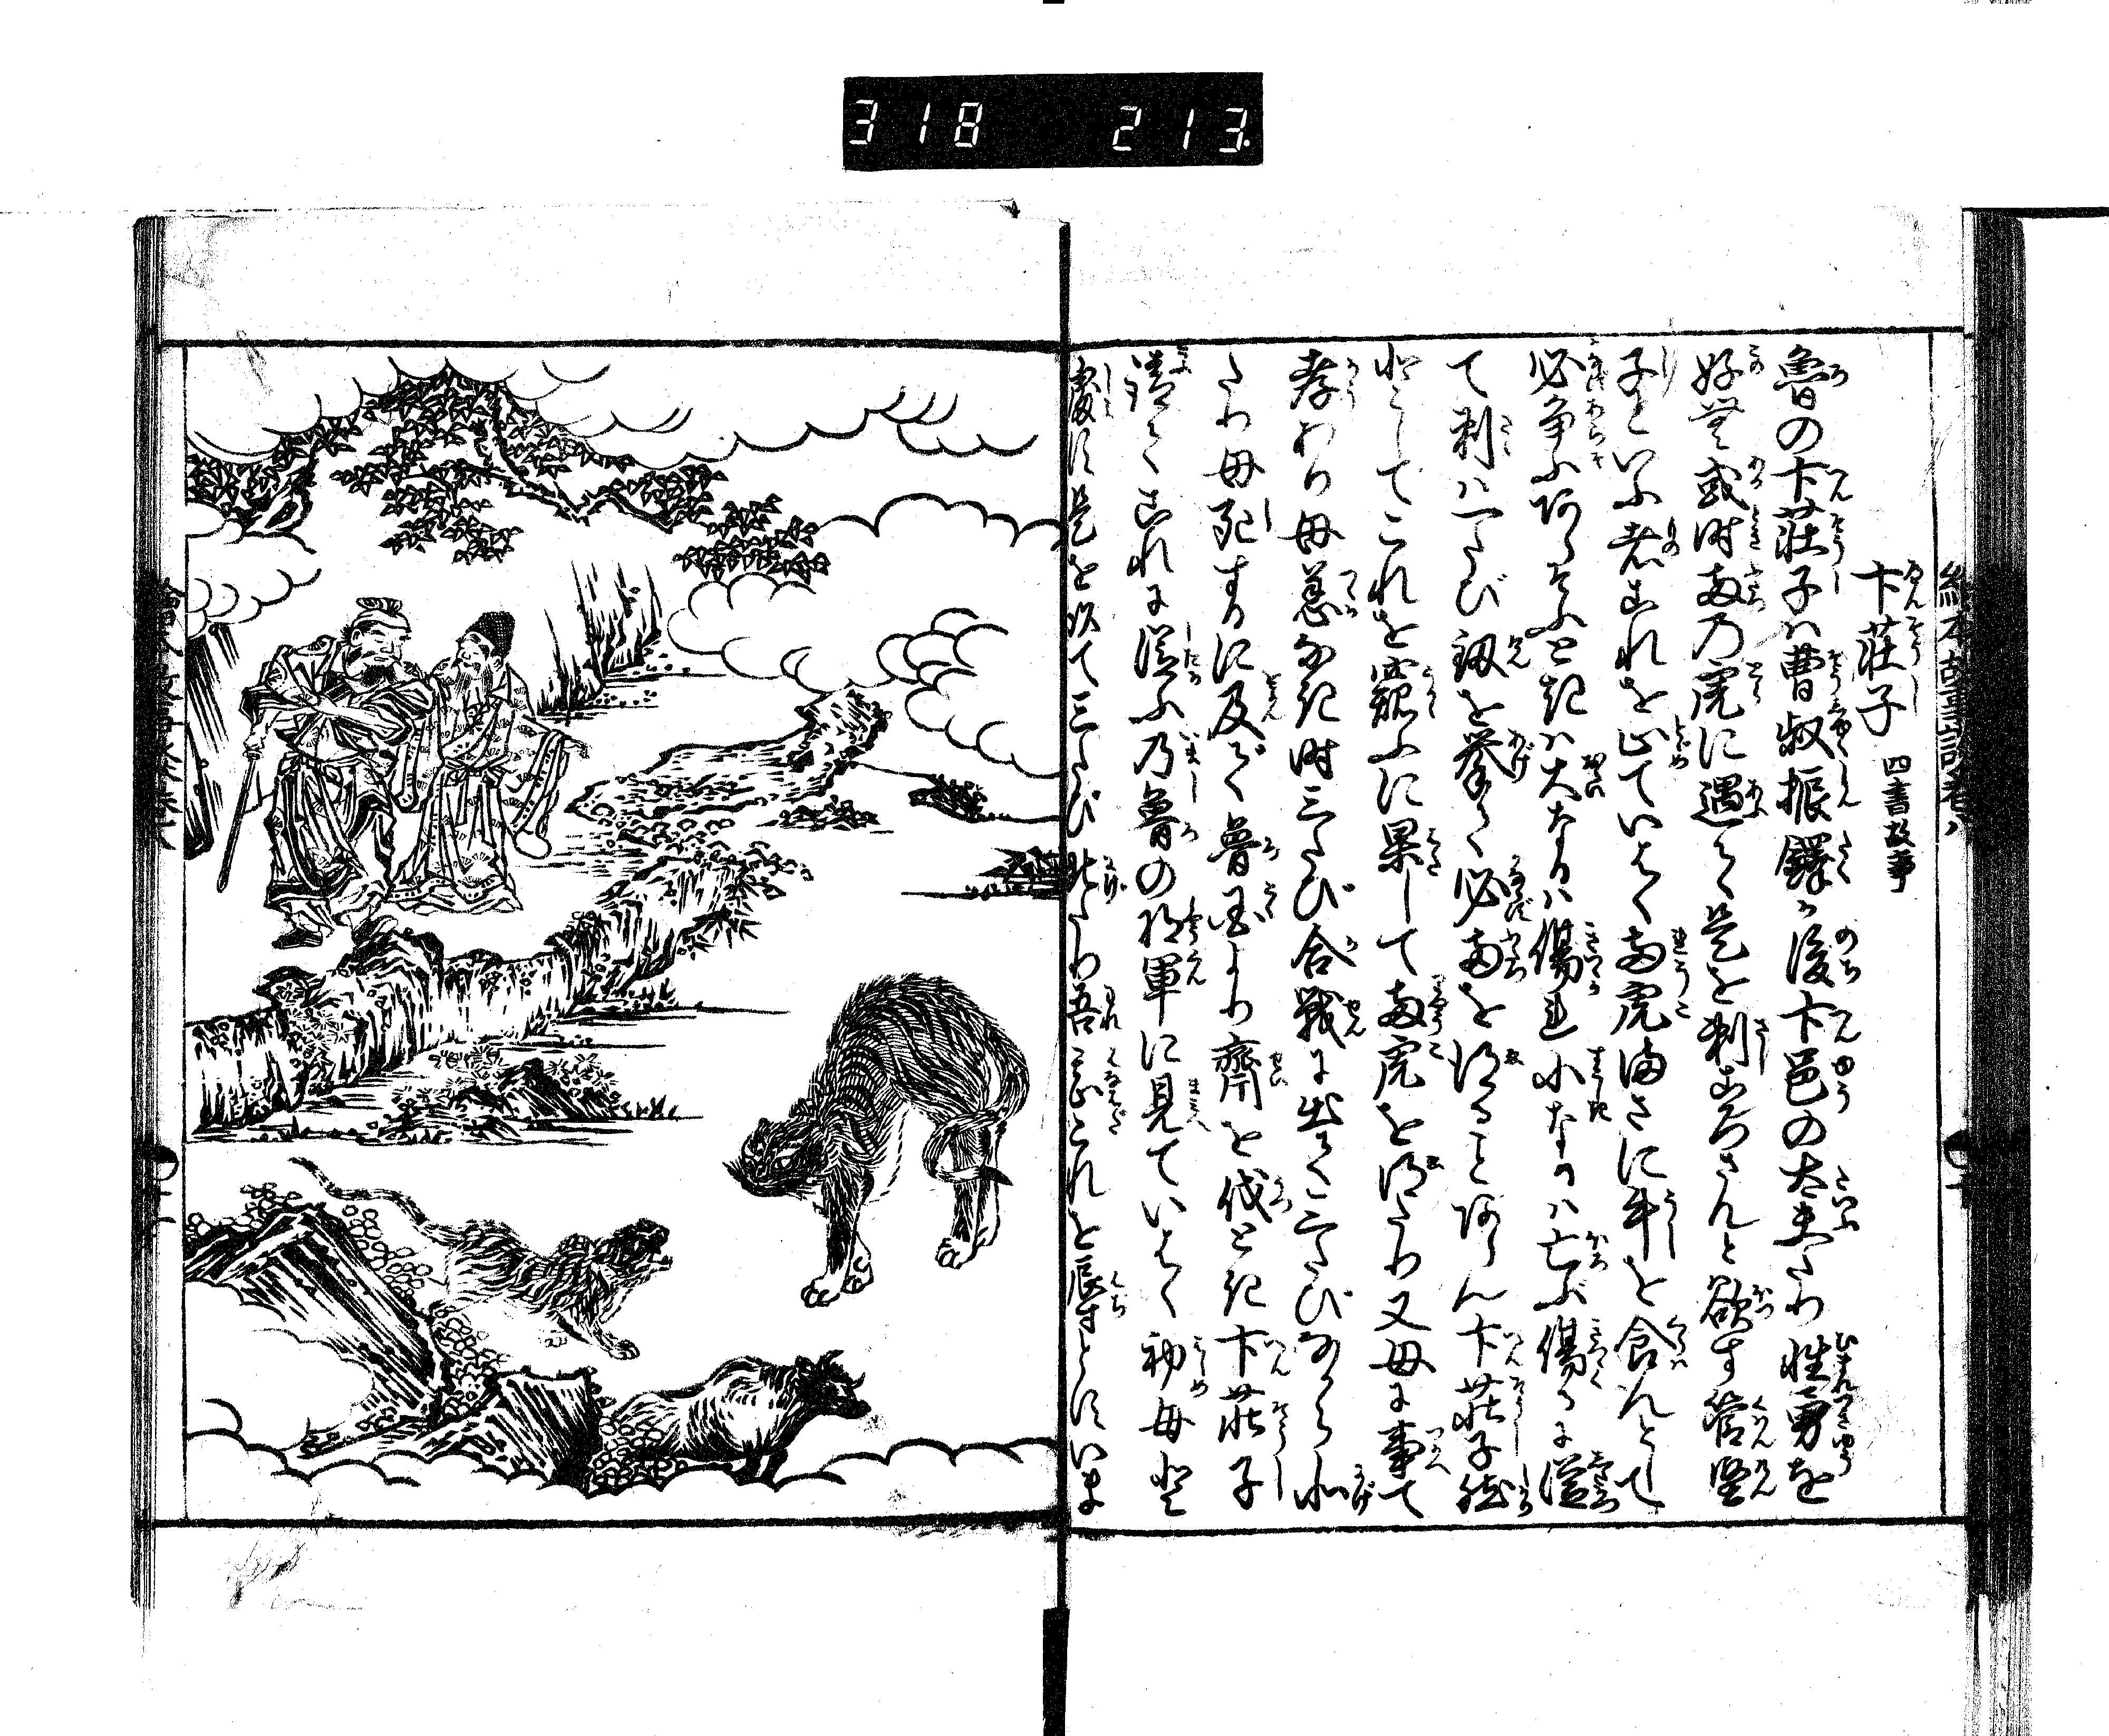 318 213
絵本故事談巻八
卞荘子 四書故事
魯の卞荘子ハ曹叔振鐸が後卞邑の大夫たり性勇を
好む或時両の虎に遇て是を刺ころさんと欲す管竪
子といふ者これを止ていはく両虎まさに牛を食んとして
必争ふあらそふときハ大なるハ傷れ小なるハ亡ぶ傷るに従
て刺ハ一たび剱を挙て必両を得ることあらん卞荘子然
としてこれを窺ふに果して両虎を得たり又母に事て
孝あり母恙なき時三たび合戦に出て三たびながら北
たり母死するに及て魯国より齊を伐とき卞荘子
請てこれに従ふ乃魯の将軍に見ていはく初母と
處は是を以て三たび北たり吾これを辱す今は